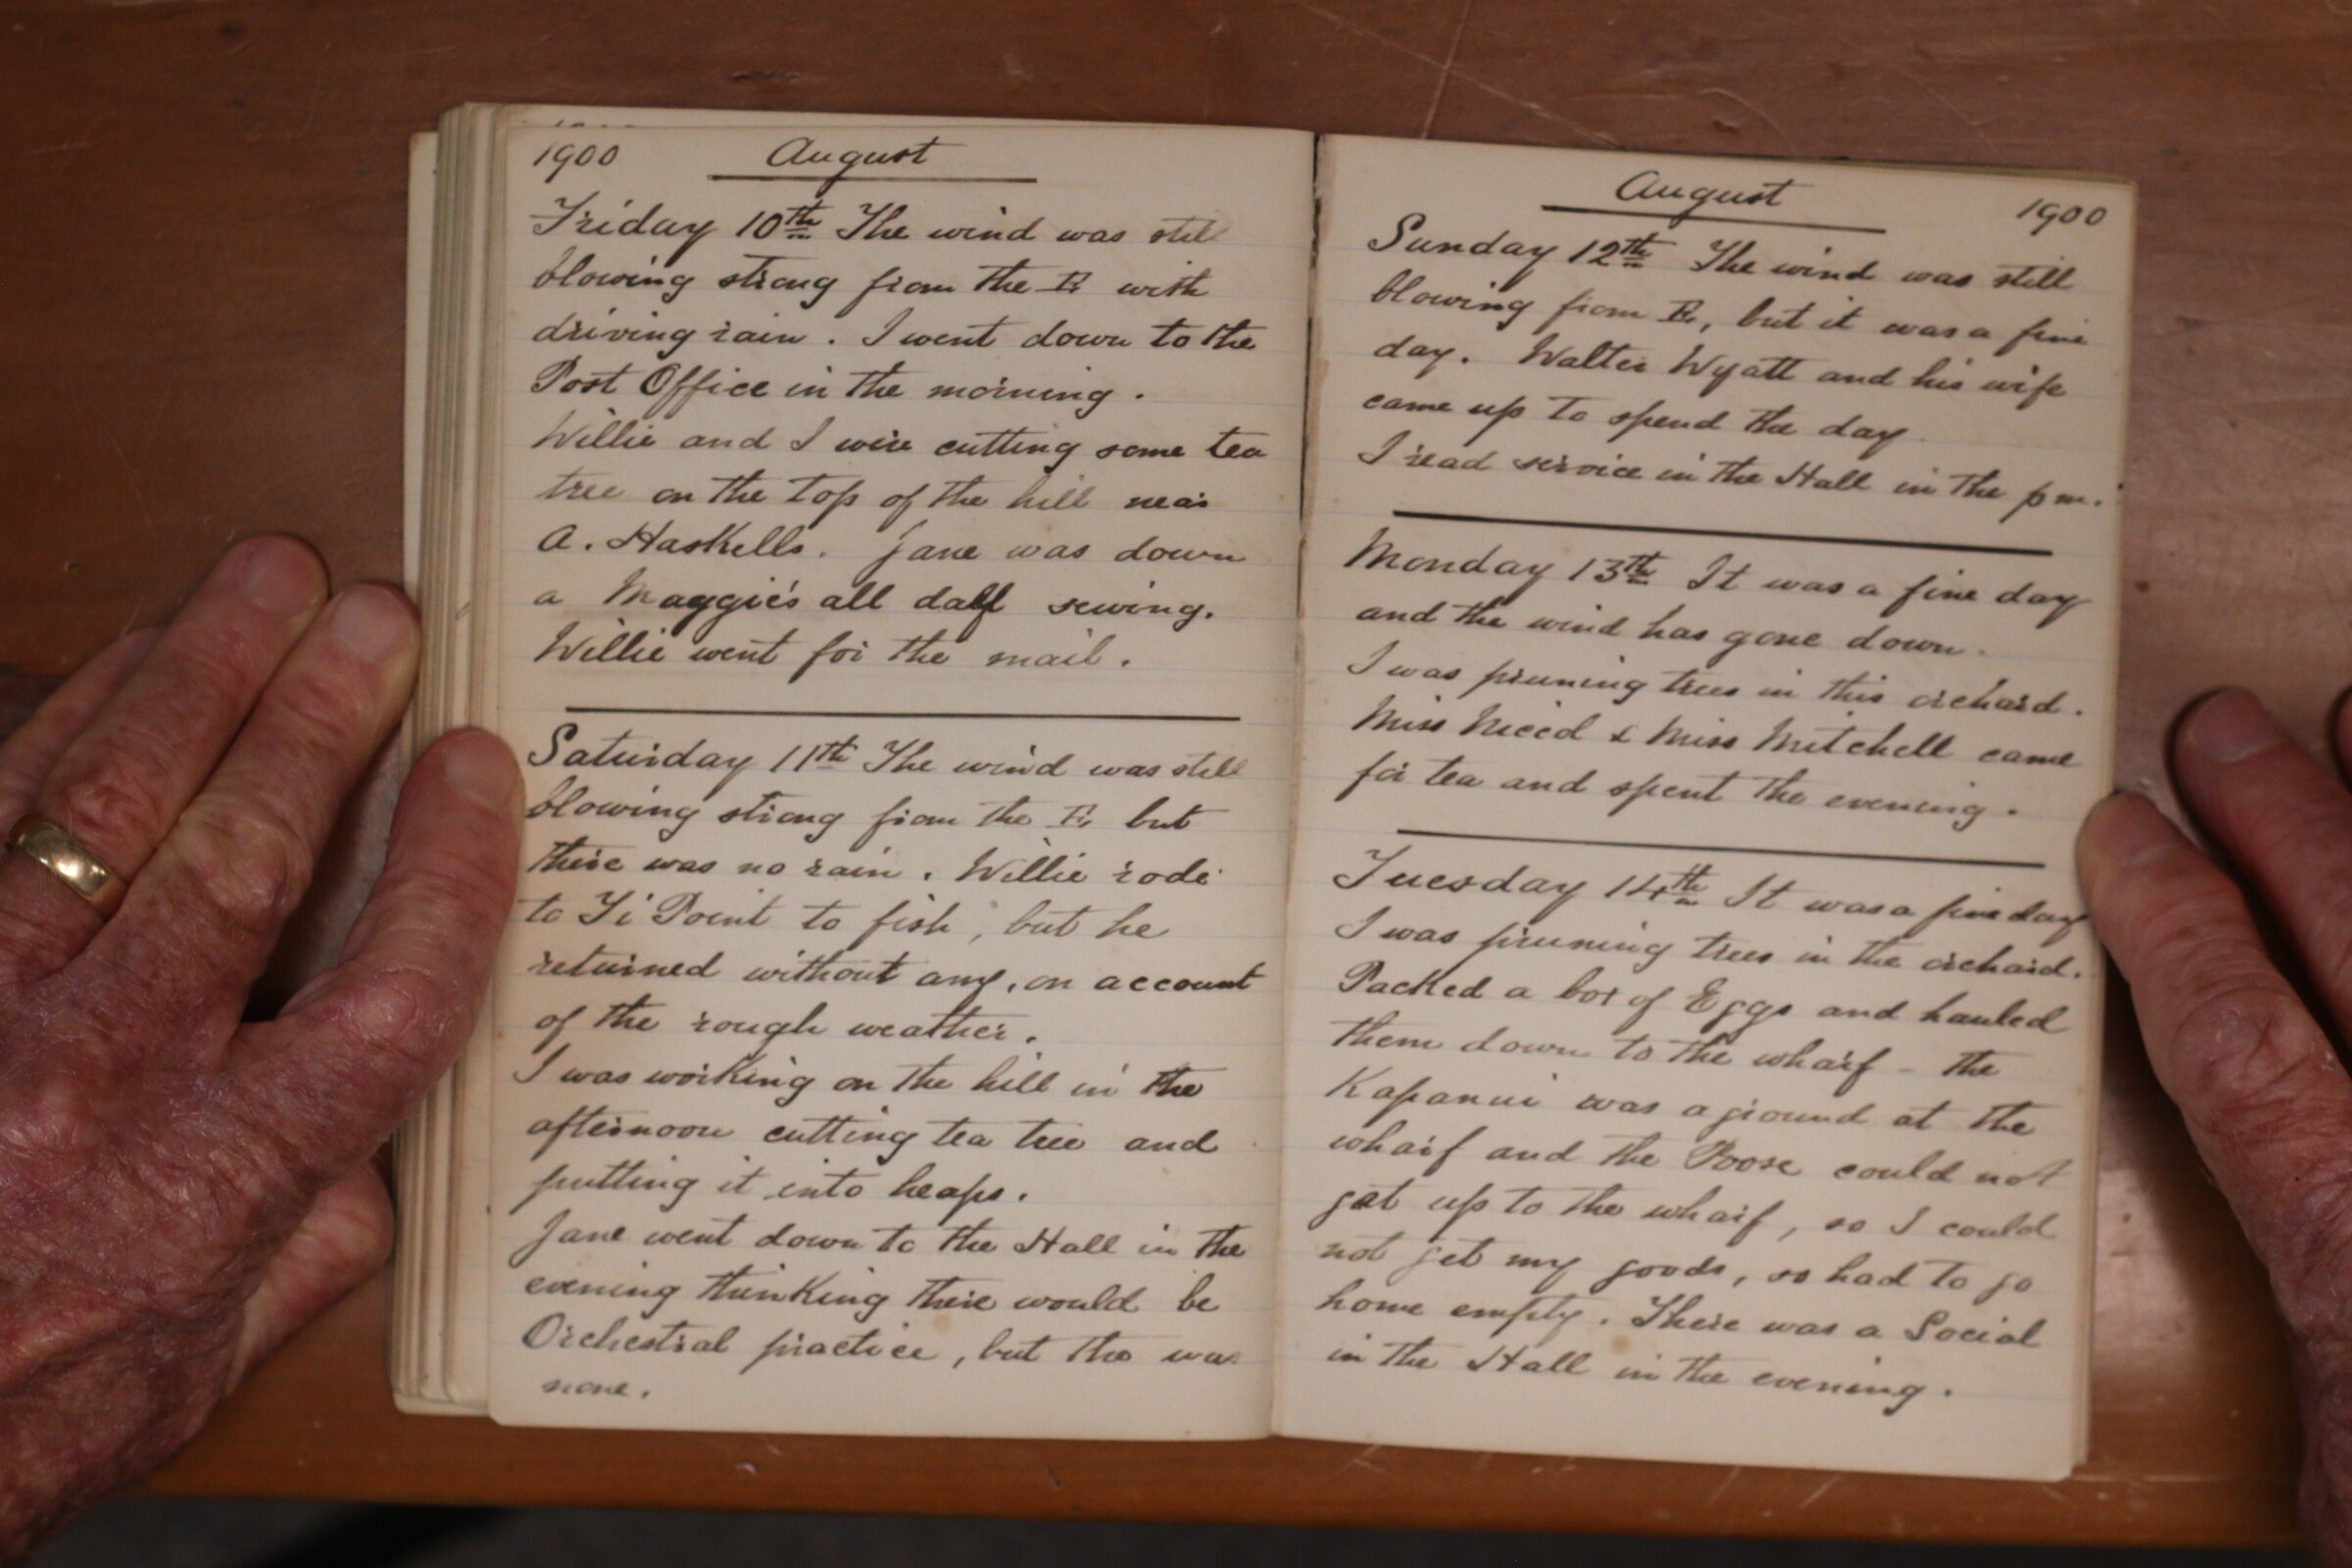 1900 August
Friday 10th The wind was still
blowing strong from the E with
driving rain. I went down to the
Post Office in the morning.
Willie and I were cutting some tea
tree on the top of the hill near
A. Haskells. Jane was down
a Maggie's all day sewing.
Willie went for the mail.
Saturday 11th The wind was still
blowing strong from the E, but
there was no rain. Willie rode
to Ti Point to fish, but he
returned without any, on account
of the rough weather.
I was working on the hill in the
afternoon cutting tea tree and
putting it into heaps.
Jane went down to the Hall in the
evening thinking there would be
Orchestral practice, but the was
none.
August 1900
Sunday 12th The wind was still
blowing from E, but it was a fine
day. Walter Wyatt and his wife
came up to spend the day
I read service in the Hall in the pm.
Monday 13th It was a fine day
and the wind has gone down.
I was pruning trees in this orchard.
Miss & Miss Mitchell came
for tea and spent the evening.
Tuesday 14th It was a fine day
I was pruning trees in the orchard.
Packed a box of Eggs and hauled
them down to the wharf - the
Kapanui was aground at the
wharf and the Rose could not
get up to the wharf, so I could
not get my goods, so had to go
home empty. There was a Social
in the Hall in the evening.